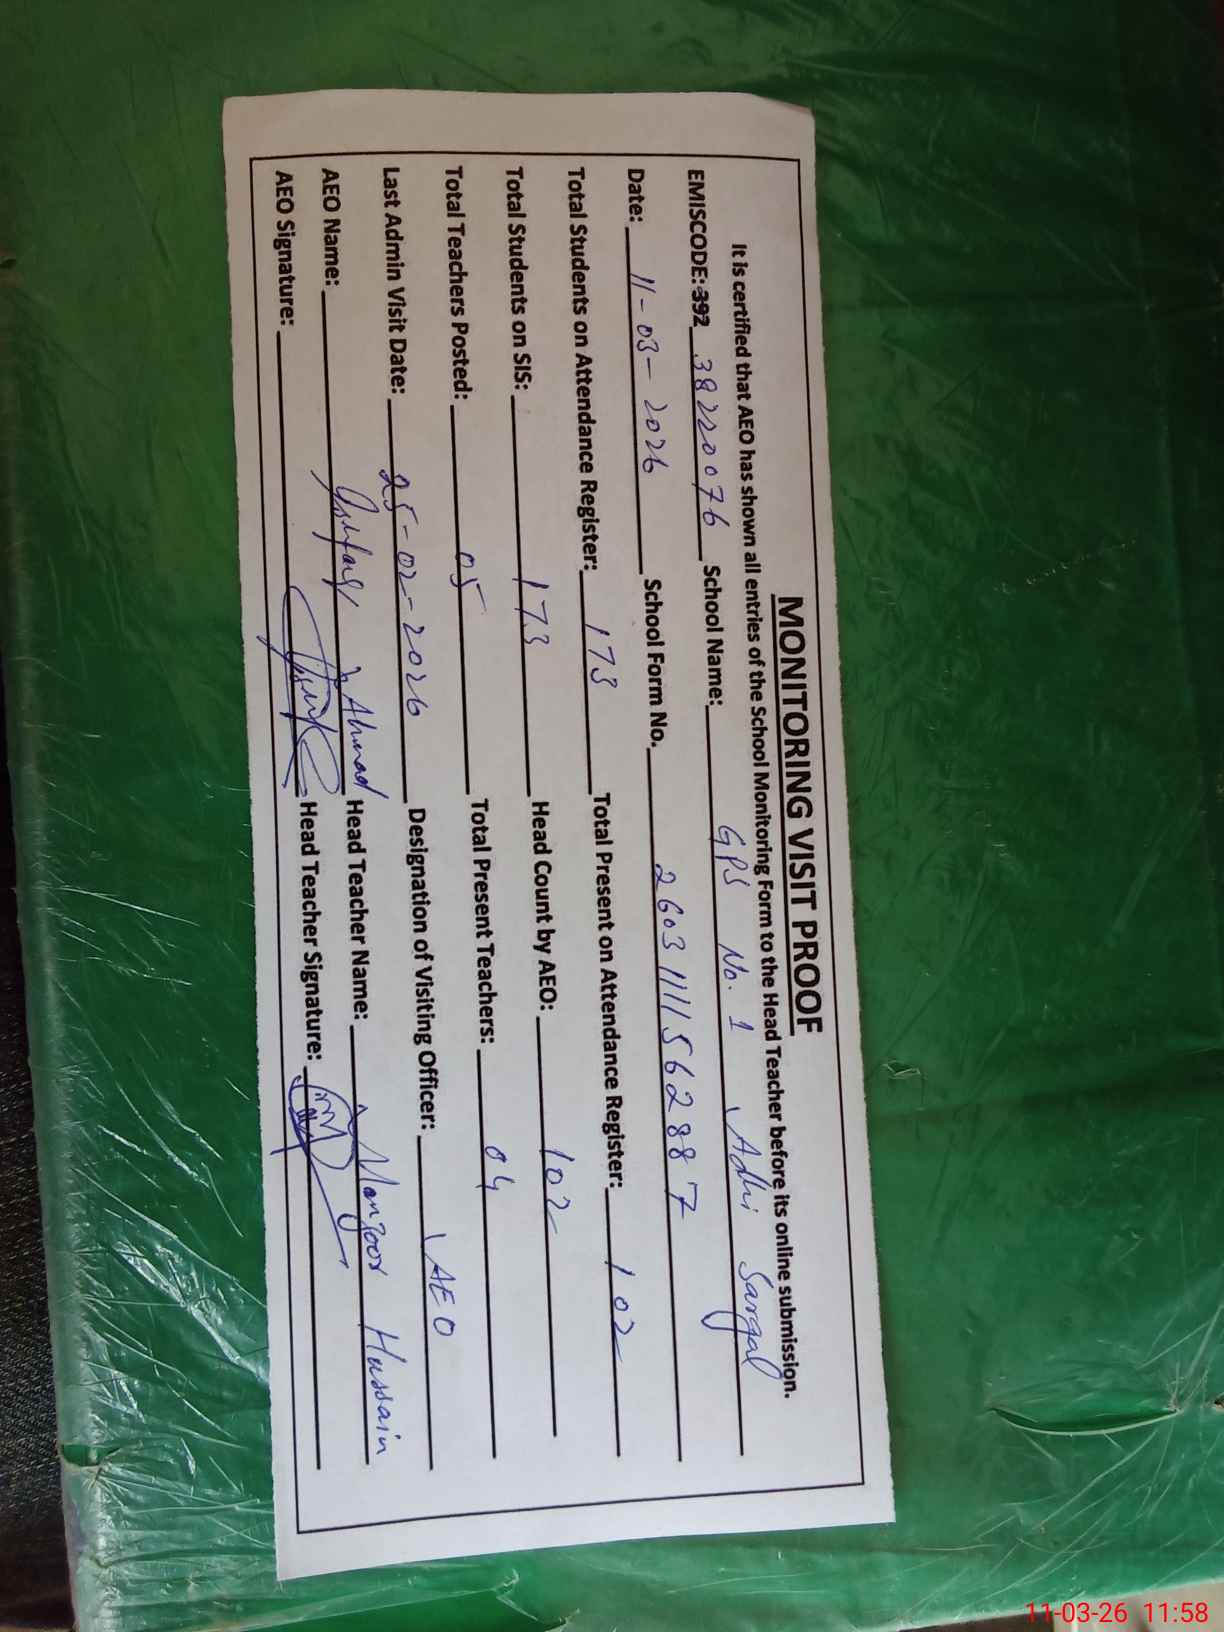 MONITORING VISIT PROOF
It is certified that AEO has shown all entries of the School Monitoring Form to the Head Teacher before its online submission.
EMISCODE: 392 38220076 School Name: GPS No. 1 Adhi Sargal
Date: 11-03-2026 School Form No. 2603111156288 7
Total Students on Attendance Register: 173 Total Present on Attendance Register: 102
Total Students on SIS: 173 Head Count by AEO: 102
Total Teachers Posted: 05 Total Present Teachers: 04
Last Admin Visit Date: 25-02-2026 Designation of Visiting Officer: AEO
AEO Name: Ahmad Head Teacher Name: Manzoor Hussain
AEO Signature: Head Teacher Signature:
11-03-26 11:58